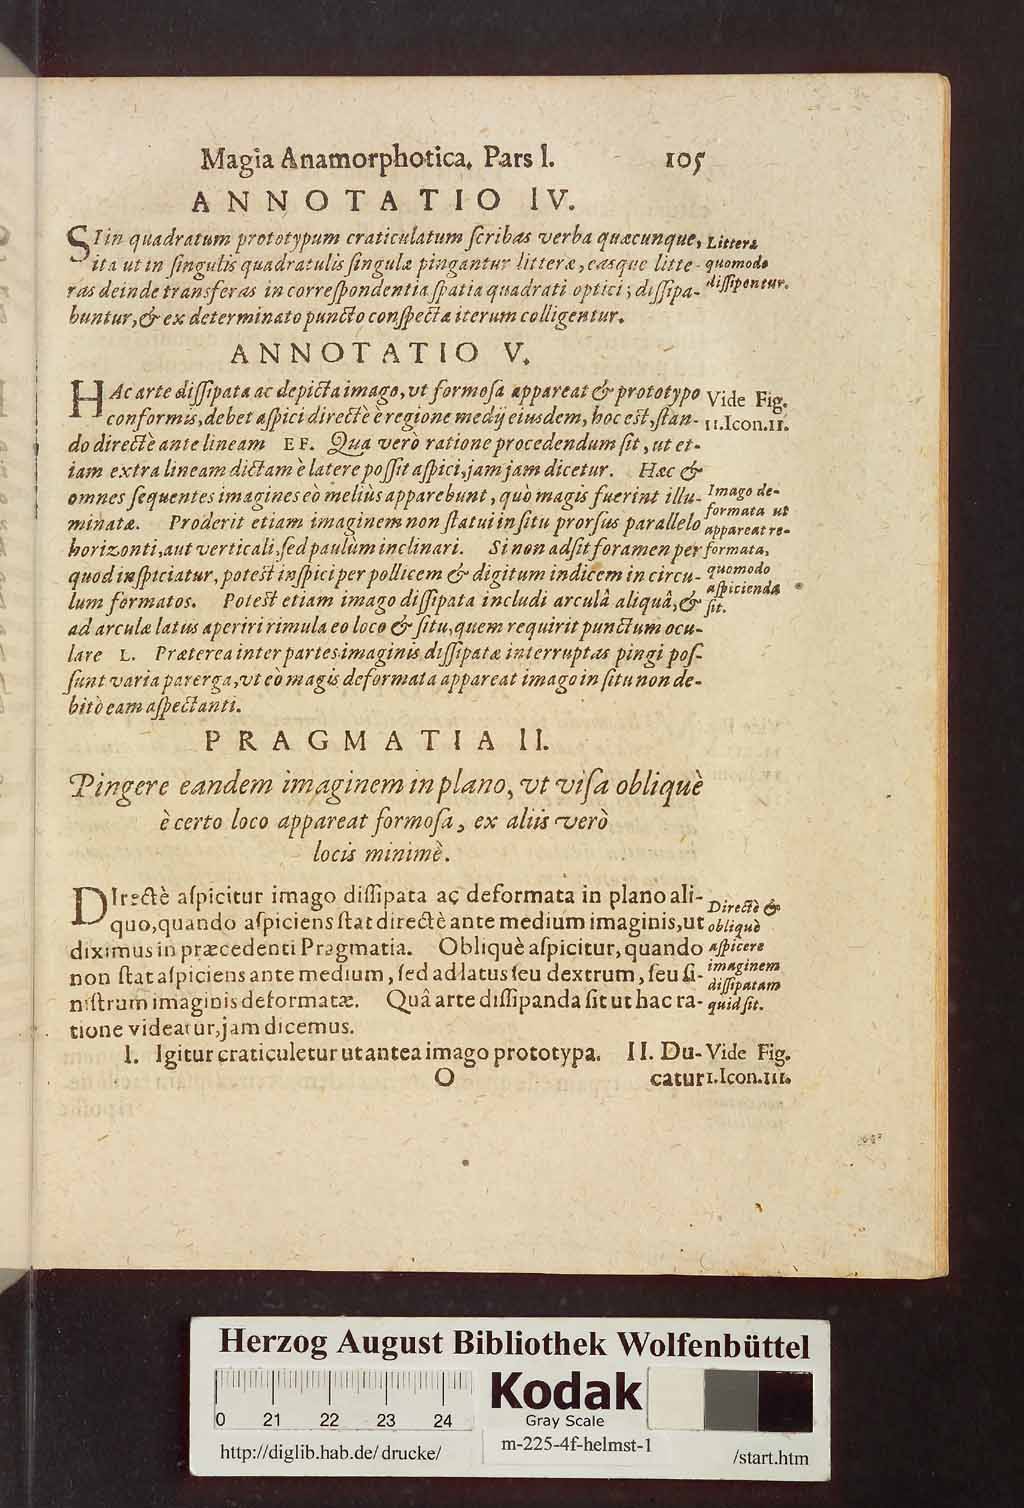 Magia Anamorphotica. Pars I. 105
ANNOTATIO IV.
SI in quadratum prototypum craticulatum ſcribas verba quæcunque,
ita ut in ſingulis quadratulis ſingulæ pingantur litteræ, easque litte-
ras deinde transferas in correſpondentia ſpatia quadrati optici; diſſipa-
buntur, & ex determinato puncto conſpectæ iterum colligentur.
Litteræ
quomodo
diſſipentur.
ANNOTATIO V.
HAc arte diſſipata ac depicta imago, ut formoſa appareat & prototypo
conformis, debet aſpici directè è regione medij eiusdem, hoc est, ſtan-
do directè ante lineam EF. Qua verò ratione procedendum ſit, ut et-
iam extra lineam dictam è latere poſſit aſpici, jam jam dicetur. Hæc &
omnes ſequentes imagines eò meliùs apparebunt, quò magis fuerint illu-
minatæ. Proderit etiam imaginem non ſtatui in ſitu prorſus parallelo
horizonti, aut verticali, ſed paulùm inclinari. Si non adſit foramen per
quod inſpiciatur, potest inſpici per pollicem & digitum indicem in circu-
lum formatos. Potest etiam imago diſſipata includi arculâ aliquâ, &
ad arculæ latus aperiri rimula eo loco & ſitu, quem requirit punctum ocu-
lare L. Præterea inter partes imaginis diſſipatæ interruptas pingi poſ-
ſunt varia parerga, vt eò magis deformata appareat imago in ſitu non de-
bitò eam aſpectanti.
Vide Fig.
II. Icon. II.
Imago de-
formata ut
appareat re-
formata,
quomodo
aſpicienda
ſit.
PRAGMATIA II.
Pingere eandem imaginem in plano, vt viſa obliquè
è certo loco appareat formoſa, ex aliis verò
locis minimè.
DIrectè aſpicitur imago diſſipata ac deformata in plano ali-
quo, quando aſpiciens ſtat directè ante medium imaginis, ut
diximus in præcedenti Pragmatia. Obliquè aſpicitur, quando
non ſtat aſpiciens ante medium, ſed ad latus ſeu dextrum, ſeu ſi-
niſtrum imaginis deformatæ. Quâ arte diſſipanda ſit ut hac ra-
tione videatur, jam dicemus.
Directè &
obliquè
aſpicere
imaginem
diſſipatam
quid ſit.
I. Igitur craticuletur ut antea imago prototypa. II. Du-
Vide Fig.
O catur
I. Icon. III.
Herzog August Bibliothek Wolfenbüttel
0 21 22 23 24
Kodak
Gray Scale
http://diglib.hab.de/drucke/
m-225-4f-helmst-1
/start.htm